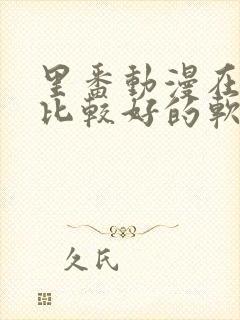 里番動漫在
比較好的軟
久氏